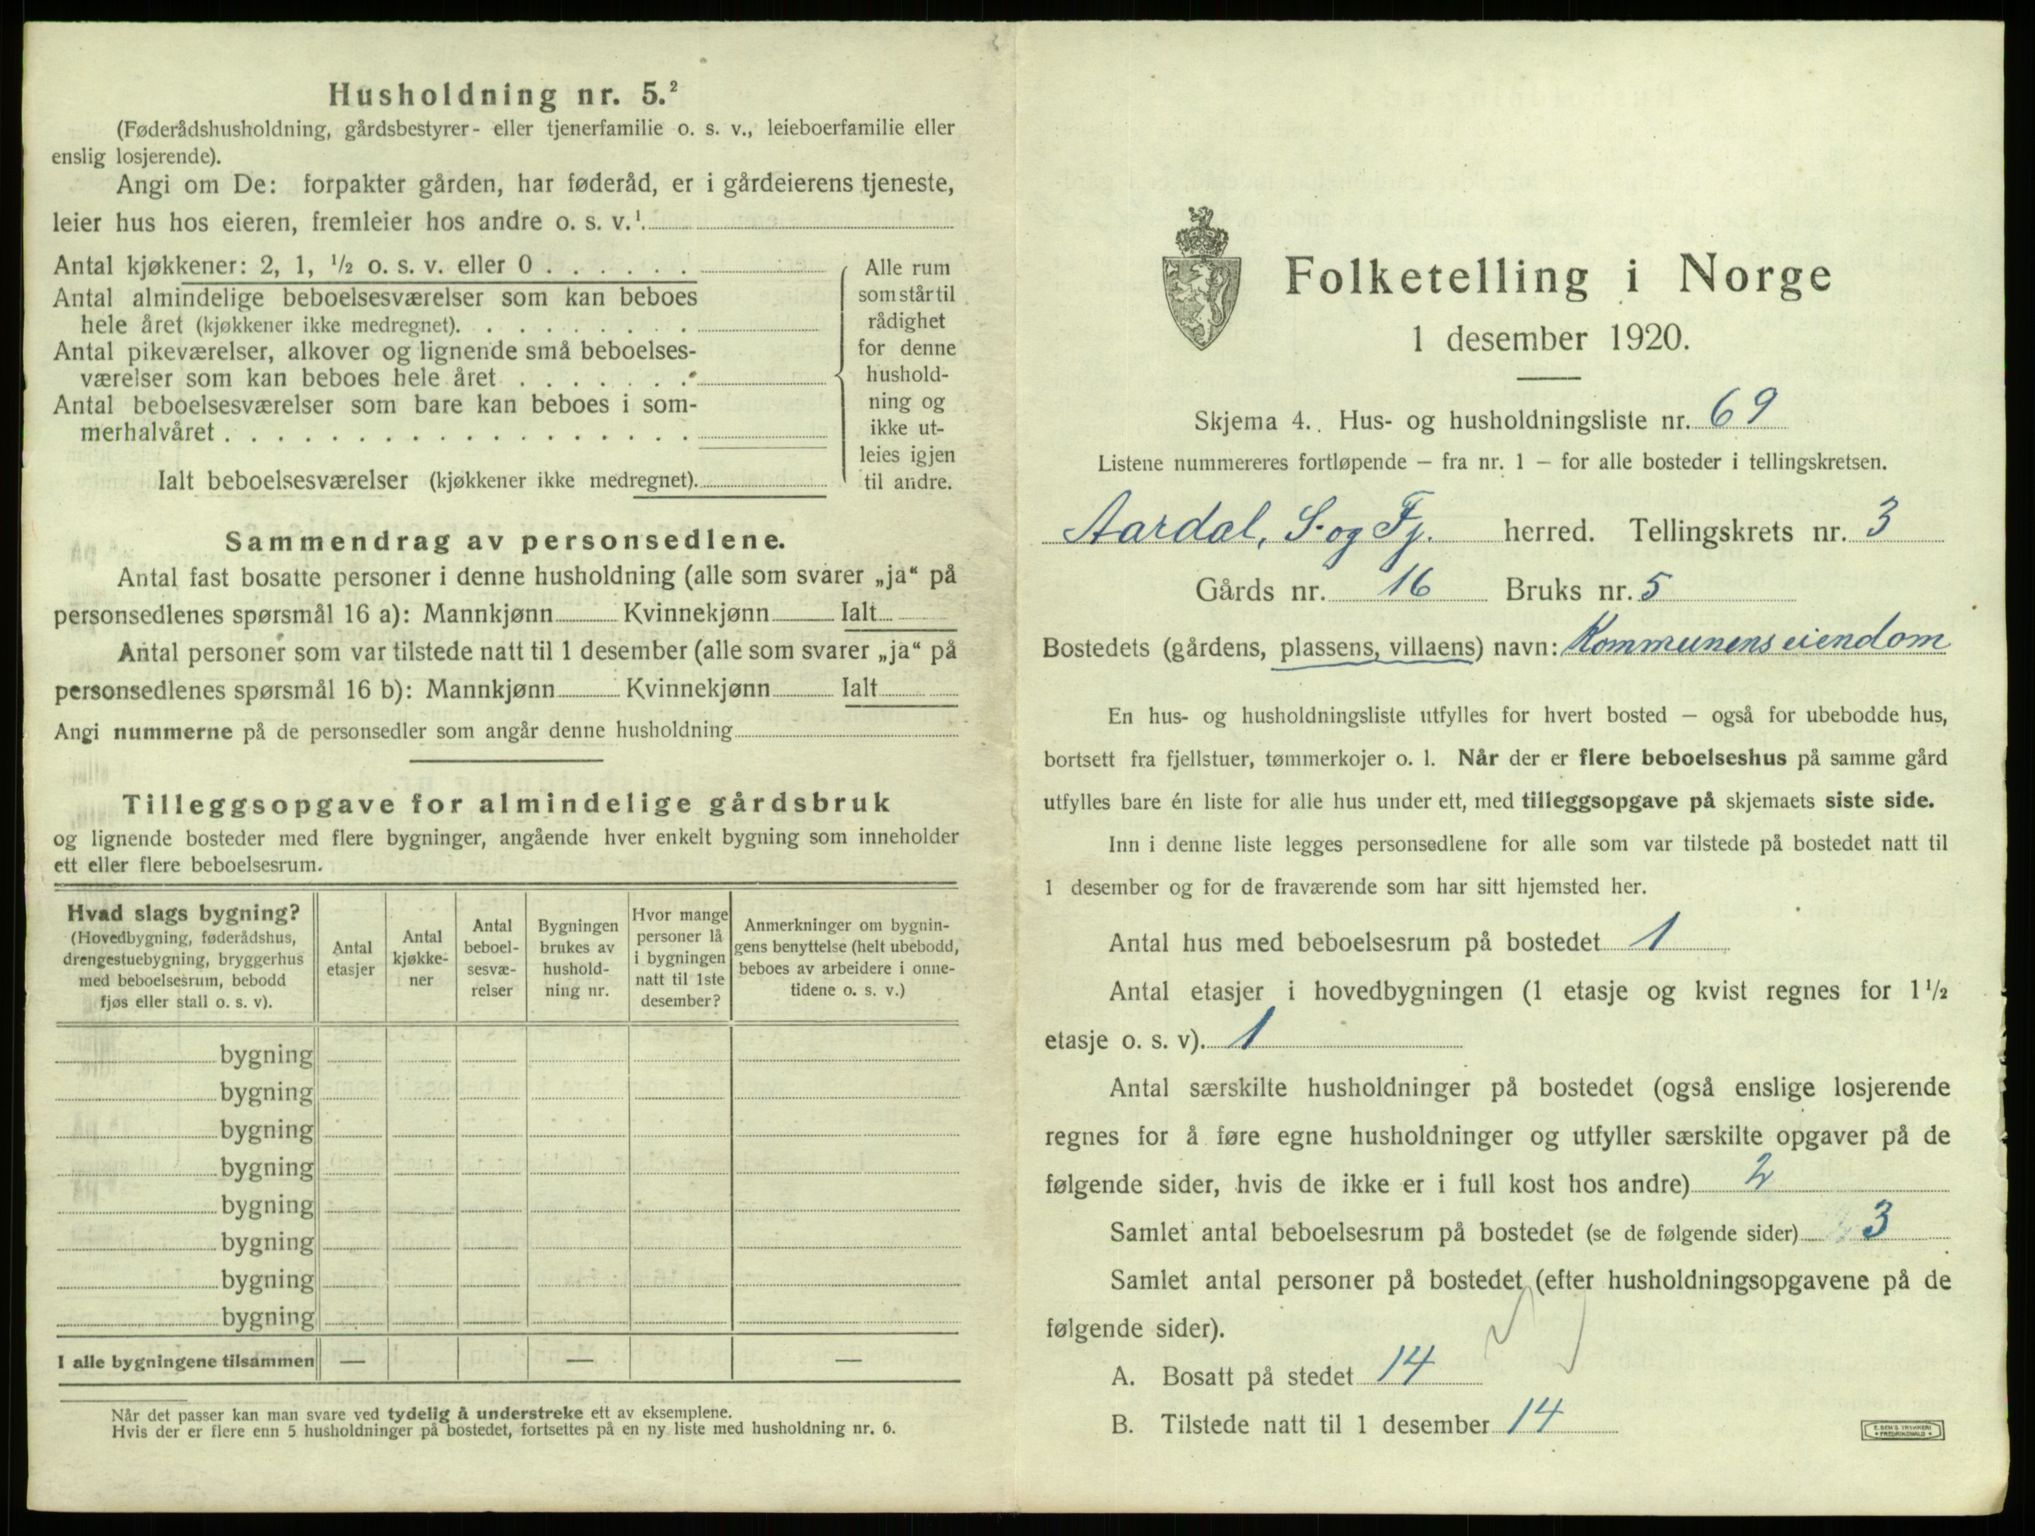 Husholdning nr. 5.²
(Føderådshusholdning, gårdsbestyrer- eller tjenerfamilie o. s. v., leieboerfamilie eller
enslig losjerende).
Angi om De: forpakter gården, har føderåd, er i gårdeierens tjeneste,
leier hus hos eieren, fremleier hos andre o. s. v.¹
Antal kjøkkener: 2, 1, ½ o. s. v. eller 0 . . . . . .
Antal almindelige beboelsesværelser som kan beboes
hele året (kjøkkener ikke medregnet). . . . . . . . .
Antal pikeværelser, alkover og lignende små beboelses-
værelser som kan beboes hele året . . . . . . .
Antal beboelsesværelser som bare kan beboes i som-
merhalvåret . . . . . . . . . . . . . . . . . .
Ialt beboelsesværelser (kjøkkener ikke medregnet).
Alle rum
som står til
rådighet
for denne
hushold-
ning og
ikke ut-
leies igjen
til andre.
Sammendrag av personsedlene.
Antal fast bosatte personer i denne husholdning (alle som svarer „ja“ på
personsedlenes spørsmål 16 a): Mannkjønn Kvinnekjønn Ialt
Antal personer som var tilstede natt til 1 desember (alle som svarer „ja“ på
personsedlenes spørsmål 16 b): Mannkjønn Kvinnekjønn Ialt
Angi nummerne på de personsedler som angår denne husholdning
Tilleggsopgave for almindelige gårdsbruk
og lignende bosteder med flere bygninger, angående hver enkelt bygning som inneholder
ett eller flere beboelsesrum.
Hvad slags bygning?
(Hovedbygning, føderådshus,
drengestuebygning, bryggerhus
med beboelsesrum, bebodd
fjøs eller stall o. s. v).
Antal
etasjer
Antal
kjøkke-
ner
Antal
beboel-
sesvæ-
relser
Bygningen
brukes av
hushold-
ning nr.
Hvor mange
personer lå
i bygningen
natt til 1ste
desember?
Anmerkninger om bygnin-
gens benyttelse (helt ubebodd,
beboes av arbeidere i onne-
tidene o. s. v.)
bygning
bygning
bygning
bygning
bygning
bygning
bygning
bygning
I alle bygningene tilsammen — — —
Når det passer kan man svare ved tydelig å understreke ett av eksemplene.
Hvis der er flere enn 5 husholdninger på bostedet, fortsettes på en ny liste med husholdning nr. 6.
Folketelling i Norge
1 desember 1920.
Skjema 4. Hus- og husholdningsliste nr. 69
Listene nummereres fortløpende – fra nr. 1 – for alle bosteder i tellingskretsen.
Aardal, S. og Fj. herred. Tellingskrets nr. 3
Gårds nr. 16 Bruks nr. 5
Bostedets (gårdens, plassens, villaens) navn: Kommunens eiendom
En hus- og husholdningsliste utfylles for hvert bosted – også for ubebodde hus,
bortsett fra fjellstuer, tømmerkojer o. l. Når der er flere beboelseshus på samme gård
utfylles bare én liste for alle hus under ett, med tilleggsopgave på skjemaets siste side.
Inn i denne liste legges personsedlene for alle som var tilstede på bostedet natt til
1 desember og for de fraværende som har sitt hjemsted her.
Antal hus med beboelsesrum på bostedet 1
Antal etasjer i hovedbygningen (1 etasje og kvist regnes for 1½
etasje o. s. v). 1
Antal særskilte husholdninger på bostedet (også enslige losjerende
regnes for å føre egne husholdninger og utfyller særskilte opgaver på de
følgende sider, hvis de ikke er i full kost hos andre) 2
Samlet antal beboelsesrum på bostedet (se de følgende sider) 3
Samlet antal personer på bostedet (efter husholdningsopgavene på de
følgende sider).
A. Bosatt på stedet 14
B. Tilstede natt til 1 desember 14